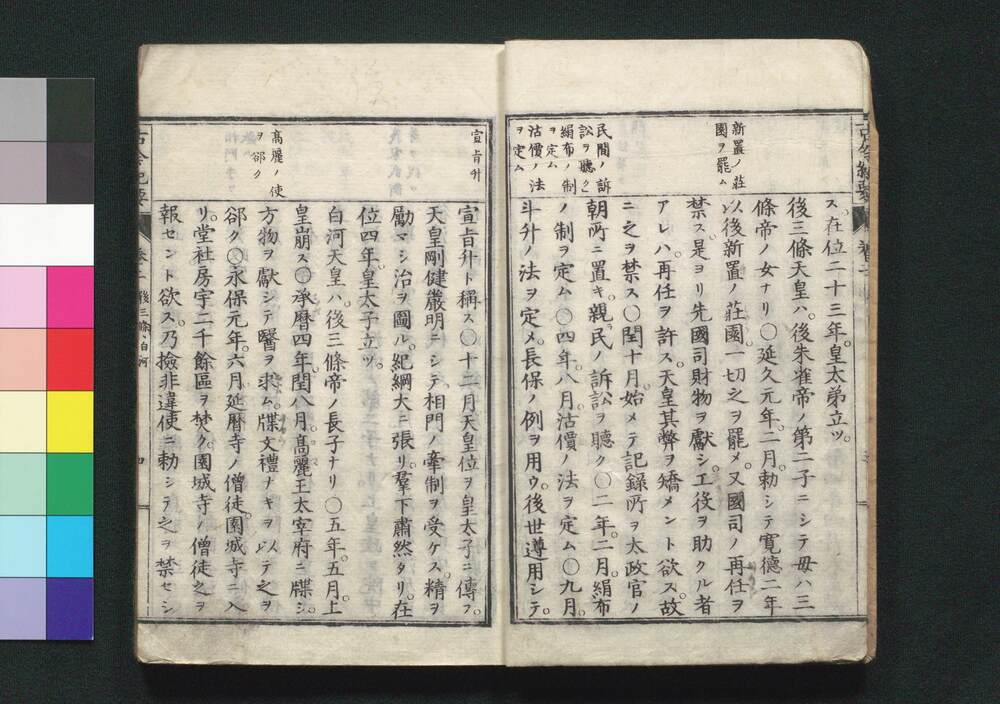 新置ノ莊
園ヲ罷ム
民間ノ訴
訟ヲ聽ク
絹布ノ制
ヲ定ム
沽價ノ法
ヲ定ム
ス。在位二十三年。皇太弟立ツ。
後三條天皇ハ。後朱雀帝ノ第二子ニシテ母ハ三
條帝ノ女ナリ〇延久元年。二月。勅シテ寛德二年
以後新置ノ莊園。一切之ヲ罷メ。又國司ノ再任ヲ
禁ス。是ヨリ先國司財物ヲ獻シ。工役ヲ助クル者
アレハ。再任ヲ許ス。天皇其弊ヲ矯メント欲ス。故
ニ之ヲ禁ス〇閏十月。始メテ記録所ヲ太政官ノ
朝所ニ置キ。親民ノ訴訟ヲ聽ク〇二年。二月。絹布
ノ制ヲ定ム〇四年。八月。沽價ノ法ヲ定ム〇九月。
斗升ノ法ヲ定メ。長保ノ例ヲ用ウ。後世遵用シテ。
宣旨升
高麗ノ使
ヲ郤ク
宣旨升ト稱ス〇十二月天皇位ヲ皇太子ニ傳フ。
天皇剛健嚴明ニシテ。相門ノ牽制ヲ受ケス。精ヲ
勵マシ治ヲ圖ル。紀綱大ニ張リ。羣下肅然タリ。在
位四年。皇太子立ツ。
白河天皇ハ。後三條帝ノ長子ナリ〇五年。五月。上
皇崩ス〇承曆四年。閏八月。高麗王太宰府ニ牒シ。
方物ヲ獻シテ醫ヲ求ム。牒文禮ナキヲ以テ之ヲ
郤ク〇永保元年。六月延曆寺ノ僧徒。園城寺ニ入
リ。堂社房宇二千餘區ヲ焚ク。園城寺ノ僧徒之ヲ
報セント欲ス。乃撿非違使ニ勅シテ之ヲ禁セシ
卷二 後三條、白河